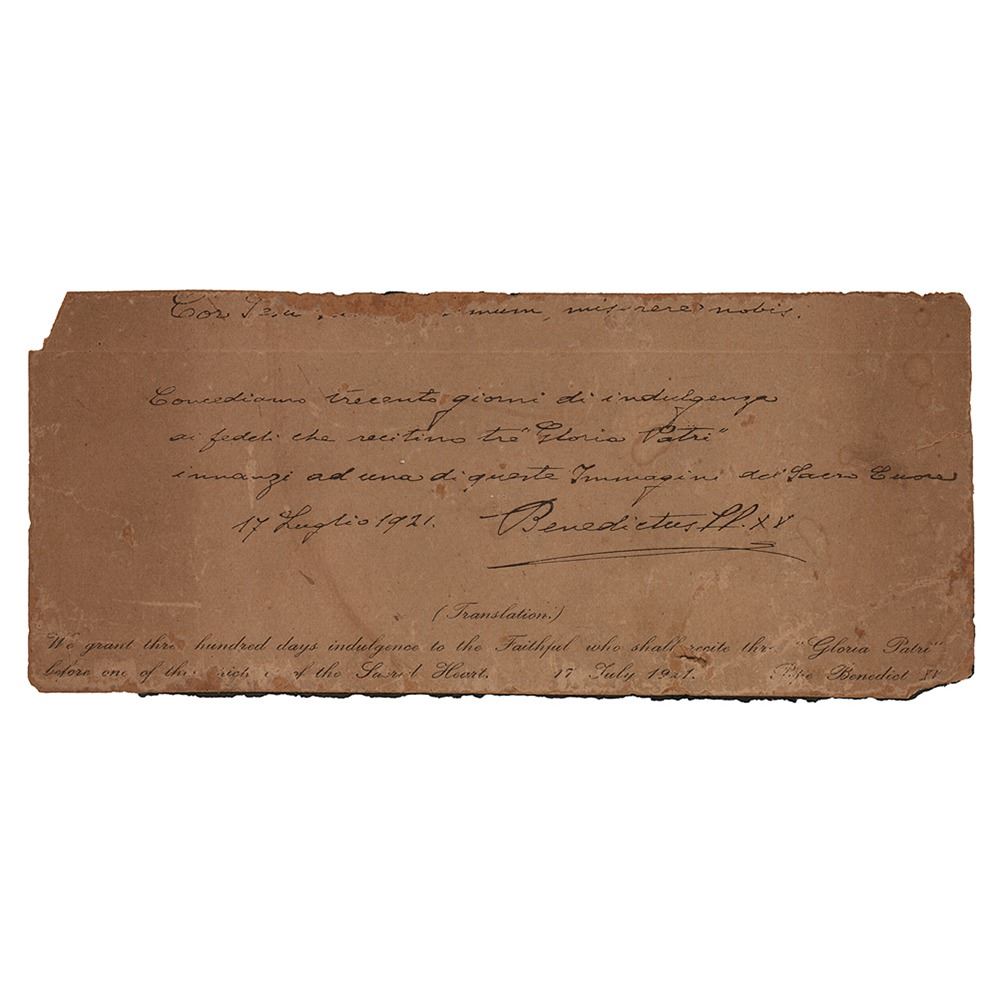 Cor Jesu mum, miserere nobis.
Concediamo trecento giorni di indulgenza
ai fedeli che recitino tre "Gloria Patri"
innanzi ad una di queste Immagini del Sacro Cuore
17 Luglio 1921. Benedictus PP. XV
(Translation.)
We grant thre hundred days indulgence to the Faithful who shall recite thr "Gloria Patri"
before one of the of the Sacred Heart. 17 July 1921. Pope Benedict XV